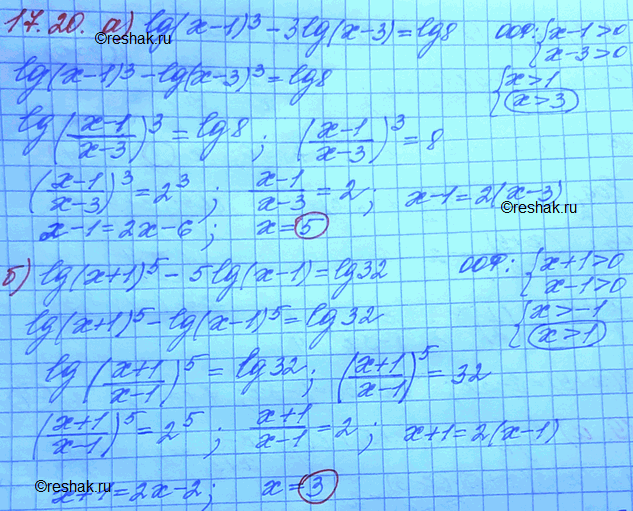 17.20. а) lg(x-1)³ - 3lg(x-3) = lg8 ООФ: {x-1>0
x-3>0
©reshak.ru
lg(x-1)³ - lg(x-3)³ = lg8 {x>1
x>3
lg((x-1)/(x-3))³ = lg8; ((x-1)/(x-3))³ = 8
((x-1)/(x-3))³ = 2³; (x-1)/(x-3) = 2; x-1=2(x-3)
©reshak.ru
x-1=2x-6; x=5
б) lg(x+1)⁵ - 5lg(x-1) = lg32 ООФ: {x+1>0
x-1>0
lg(x+1)⁵ - lg(x-1)⁵ = lg32 {x>-1
x>1
lg((x+1)/(x-1))⁵ = lg32; ((x+1)/(x-1))⁵ = 32
((x+1)/(x-1))⁵ = 2⁵; (x+1)/(x-1) = 2; x+1=2(x-1)
©reshak.ru
x+1=2x-2; x=3